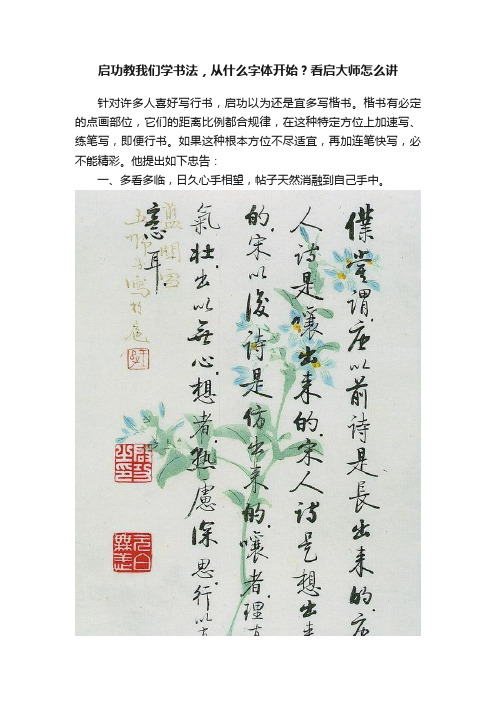 启功教我们学书法，从什么字体开始？看启大师怎么讲
针对许多人喜好写行书，启功以为还是宜多写楷书。楷书有必定
的点画部位，它们的距离比例都合规律，在这种特定方位上加速写、
练笔写，即便行书。如果这种根本方位不尽适宜，再加连笔快写，必
不能精彩。他提出如下忠告：
一、多看多临，日久心手相望，帖子天然消融到自己手中。
僕嘗謂唐以前詩是長出来的唐
人詩是嚷出来的宋人詩是想出来
的宋以後詩是仿出来的嚷者理直
氣壯出以無心想者熟慮深思行以有
意耳